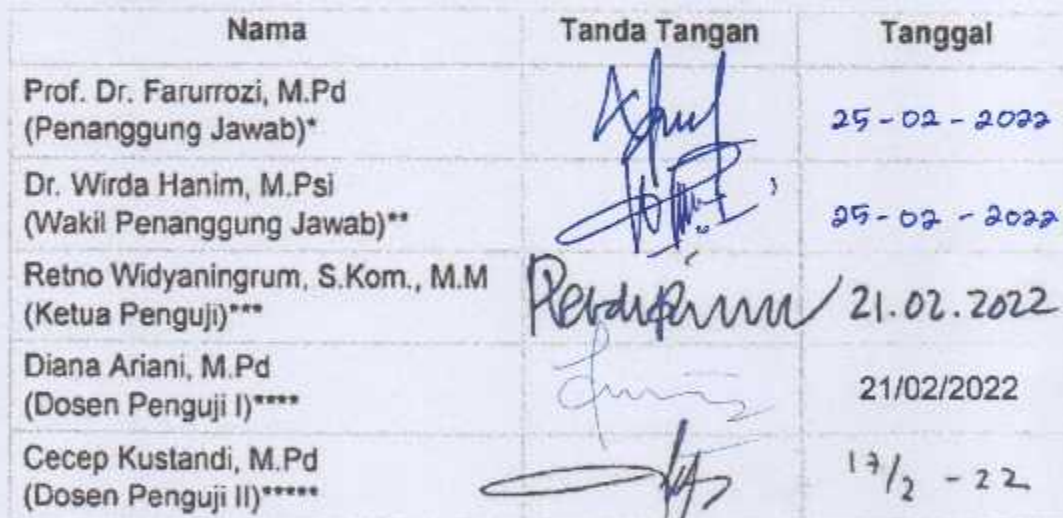 Nama Tanda Tangan Tanggal
Prof. Dr. Farurrozi, M.Pd
(Penanggung Jawab)* 25-02-2022
Dr. Wirda Hanim, M.Psi
(Wakil Penanggung Jawab)** 25-02-2022
Retno Widyaningrum, S.Kom., M.M
(Ketua Penguji)*** 21.02.2022
Diana Ariani, M.Pd
(Dosen Penguji I)**** 21/02/2022
Cecep Kustandi, M.Pd
(Dosen Penguji II)***** 17/2 - 22